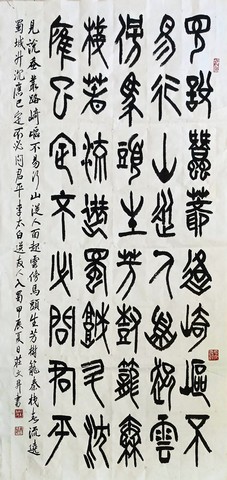 見說蠶叢路崎嶇不
易行山從人面起雲
傍馬頭生芳樹籠秦
棧春流遶蜀城升沉
應已定不必問君平
見說蚕叢路崎嶇不易行山從人面起雲傍馬頭生芳樹籠秦棧春流遶
蜀城升沉應已定不必問君平李太白送友人入蜀甲辰夏日莊文書